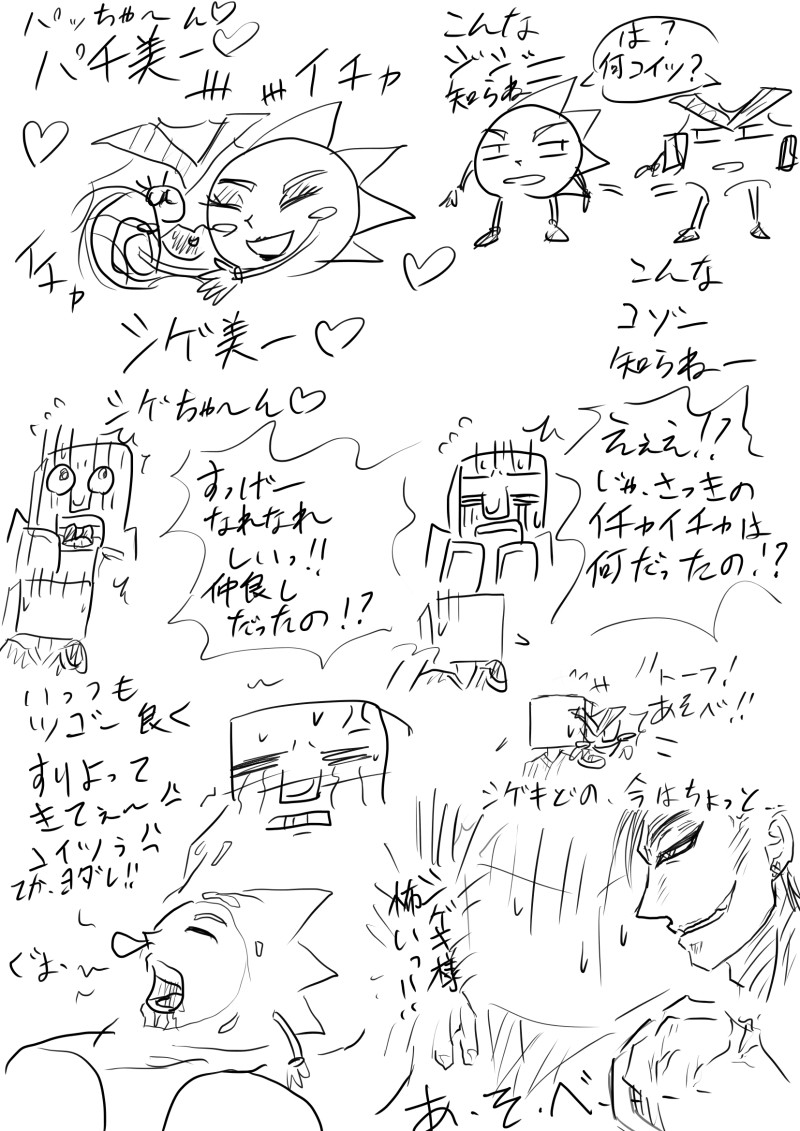 パッちゃ〜ん♡
パチ美ー♡
イチャ
イチャ
シゲ美ー♡
シゲちゃ〜ん♡
こんな
ジジー
知らねー
は？
何コイツ？
こんな
コゾー
知らねー
すっげー
なれなれ
しいっ!!
仲良し
だったの!?
えぇえ!!
じゃ、さっきの
イチャイチャは
何だったの!?
いっつも
ツゴー良く
すりよって
きてぇ〜
コイツらっ
てか、ヨダレ!!
ぐぉ〜
トーフ!
あそべ!!
シゲキどの、今はちょっと…
シゲキ様
怖いっ!!
あ・そ・べ・